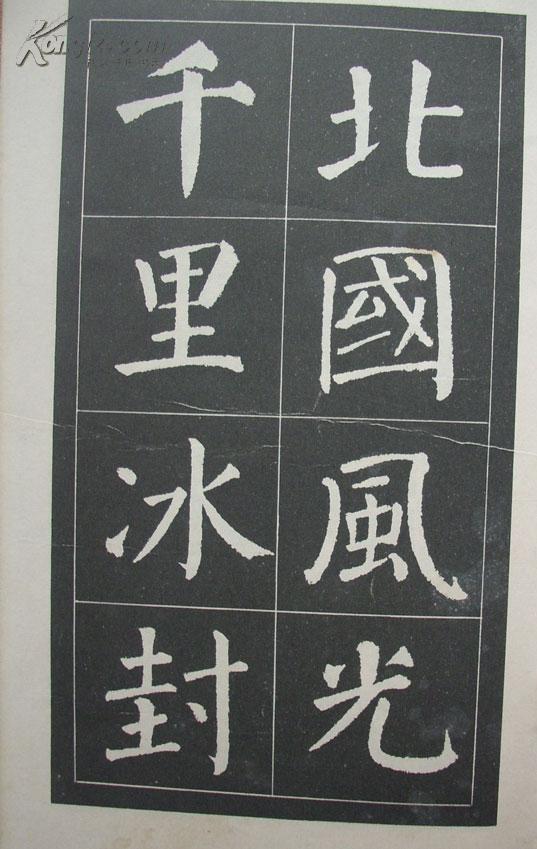 北國風光
千里冰封